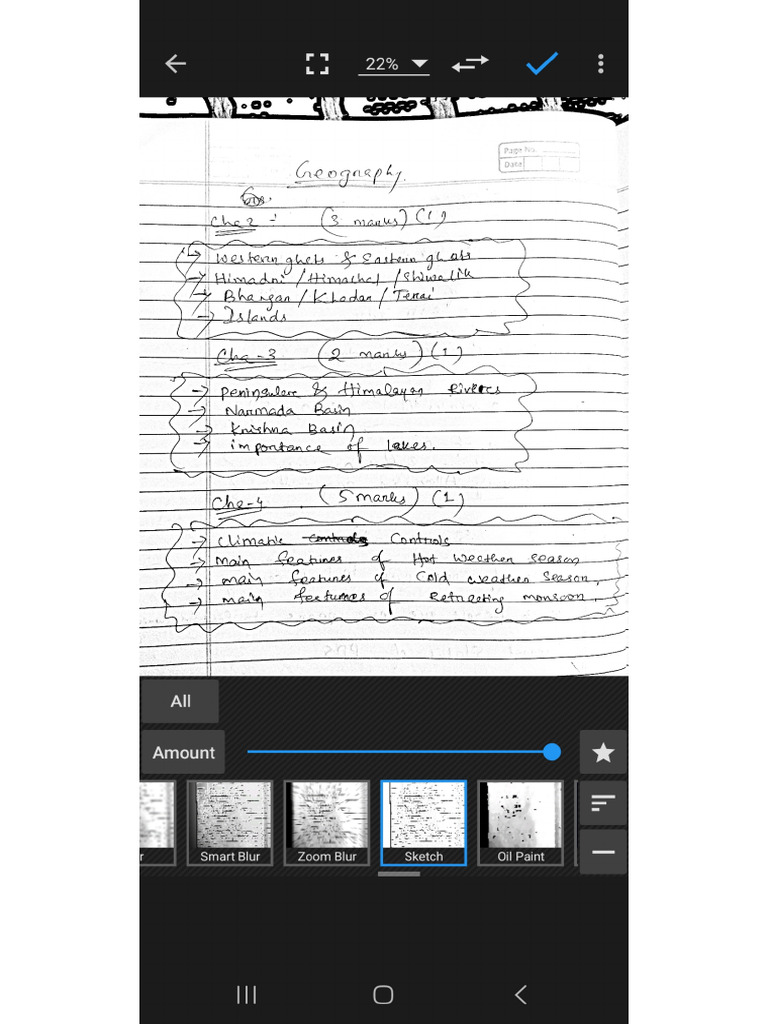 22%
Page No.
Date
Geography
Cha 2 : (3 marks) (1)
→ Western ghats & Eastern ghats
→ Himadri / Himachal / Shiwalik
→ Bhangan / Khadan / Terai
→ Islands
Cha-3 (2 marks) (1)
→ Peninsulare & Himalayan Rivers
→ Narmada Basin
→ Krishna Basin
→ importance of lakes.
Cha-4 (5 marks) (1)
→ Climatic Controls
→ Main features of Hot Weather Season
→ main features of Cold weather Season,
→ main features of Retreating monsoon.
All
Amount
r
Smart Blur
Zoom Blur
Sketch
Oil Paint